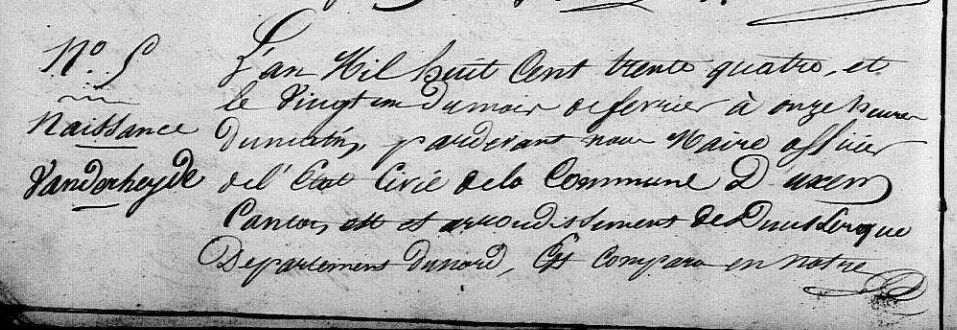 N.º 5
Naissance
Vanderheyde
L'an Mil huit Cent trente quatre, et
le vingt un du mois de fevrier à onze heures
du matin, pardevant nous Maire officier
de l'Etat Civil de la Commune D'uxem
Canton, est et arrondissement de Dunkerque
Departement du nord, Est comparu en notre